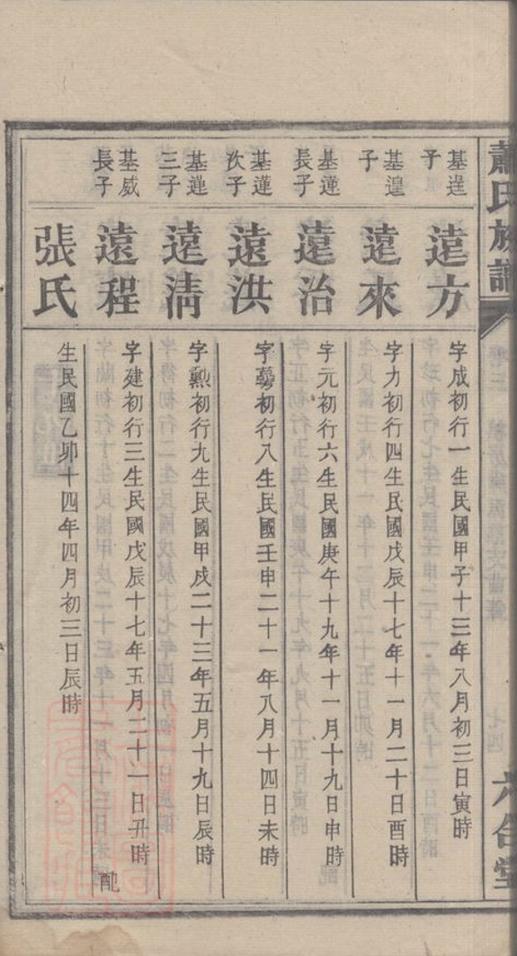 蕭氏族譜
六合堂
基逞
子
遠方
字成初行一生民國甲子十三年八月初三日寅時
基湟
子
遠來
字力初行四生民國戊辰十七年十一月二十日酉時
基蓮
長子
遠治
字元初行六生民國庚午十九年十一月十九日申時
基蓮
次子
遠洪
初行八生民國壬申二十一年八月十四日未時
基蓮
三子
遠清
字勲初行九生民國甲戍二十三年五月十九日辰時
基威
長子
遠程
字建初行三生民國戊辰十七年五月二十一日丑時 配
張氏
生民國乙卯十四年四月初三日辰時